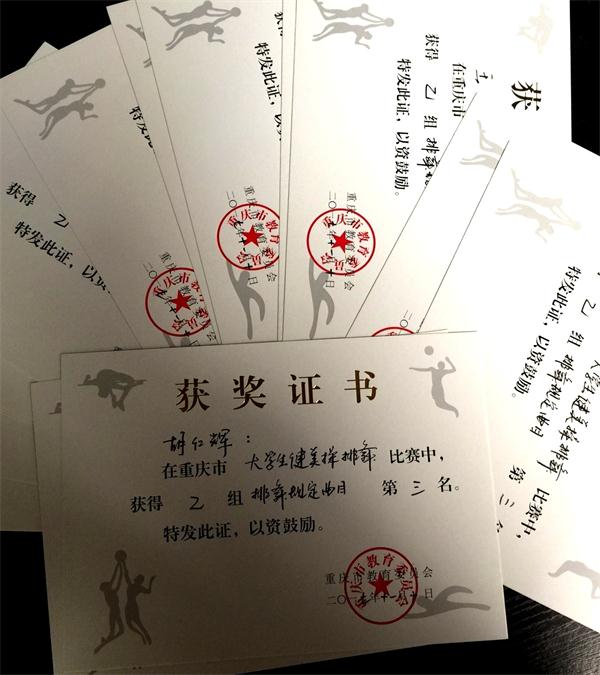 获奖证书
胡仁辉：
在重庆市 大学生健美操排舞 比赛中，
获得 乙 组 排舞规定曲目 第 三 名。
特发此证，以资鼓励。
重庆市教育委员会
年十一月十日
重庆市教育委员会
获得 乙
特发此证，以资
特发此
重庆市教育委员会
特发此证，以
重庆市教育委员会
获
在重庆市
获得 乙 组 排舞规
特发此证，以资鼓励。
重庆市教育委员会
大学生健美操排舞 比赛中，
乙 组 排舞规定曲目 第 三 名
特发此证，以资鼓励。